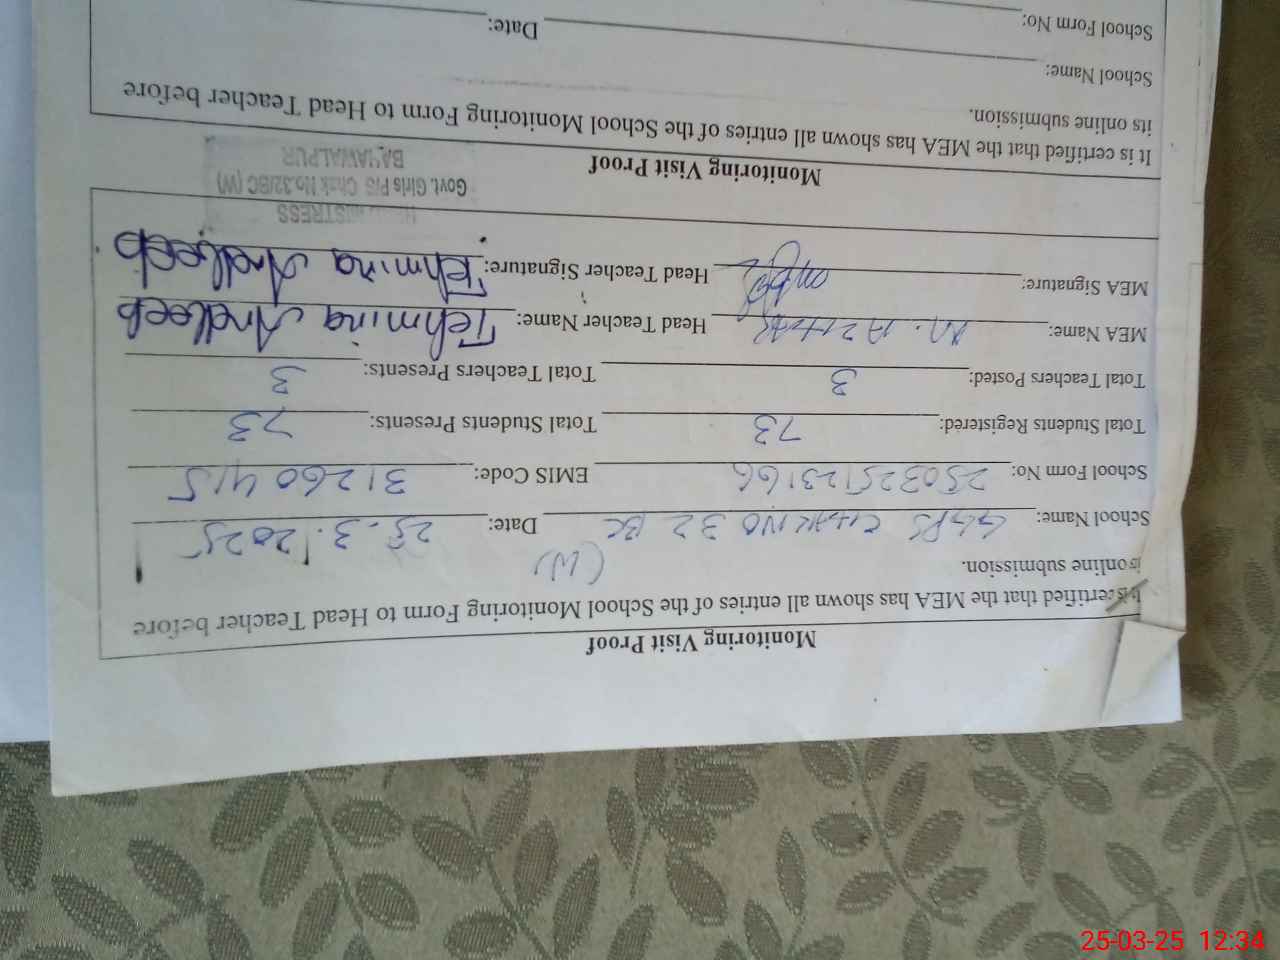 Monitoring Visit Proof
It is certified that the MEA has shown all entries of the School Monitoring Form to Head Teacher before
its online submission.
(W)
School Name: GGPS CHAK NO 32 BC Date: 25.3.2025
School Form No: 250325123166 EMIS Code: 31260415
Total Students Registered: 73 Total Students Presents: 73
Total Teachers Posted: 3 Total Teachers Presents: 3
MEA Name: M. Azhar Head Teacher Name: Tehmina Andleeb
MEA Signature: Head Teacher Signature: Tehmina Andleeb
Govt. Girls P/S Chak No.32/BC (W)
BAHAWALPUR
Monitoring Visit Proof
It is certified that the MEA has shown all entries of the School Monitoring Form to Head Teacher before
its online submission.
School Name: Date:
School Form No:
25-03-25 12:34